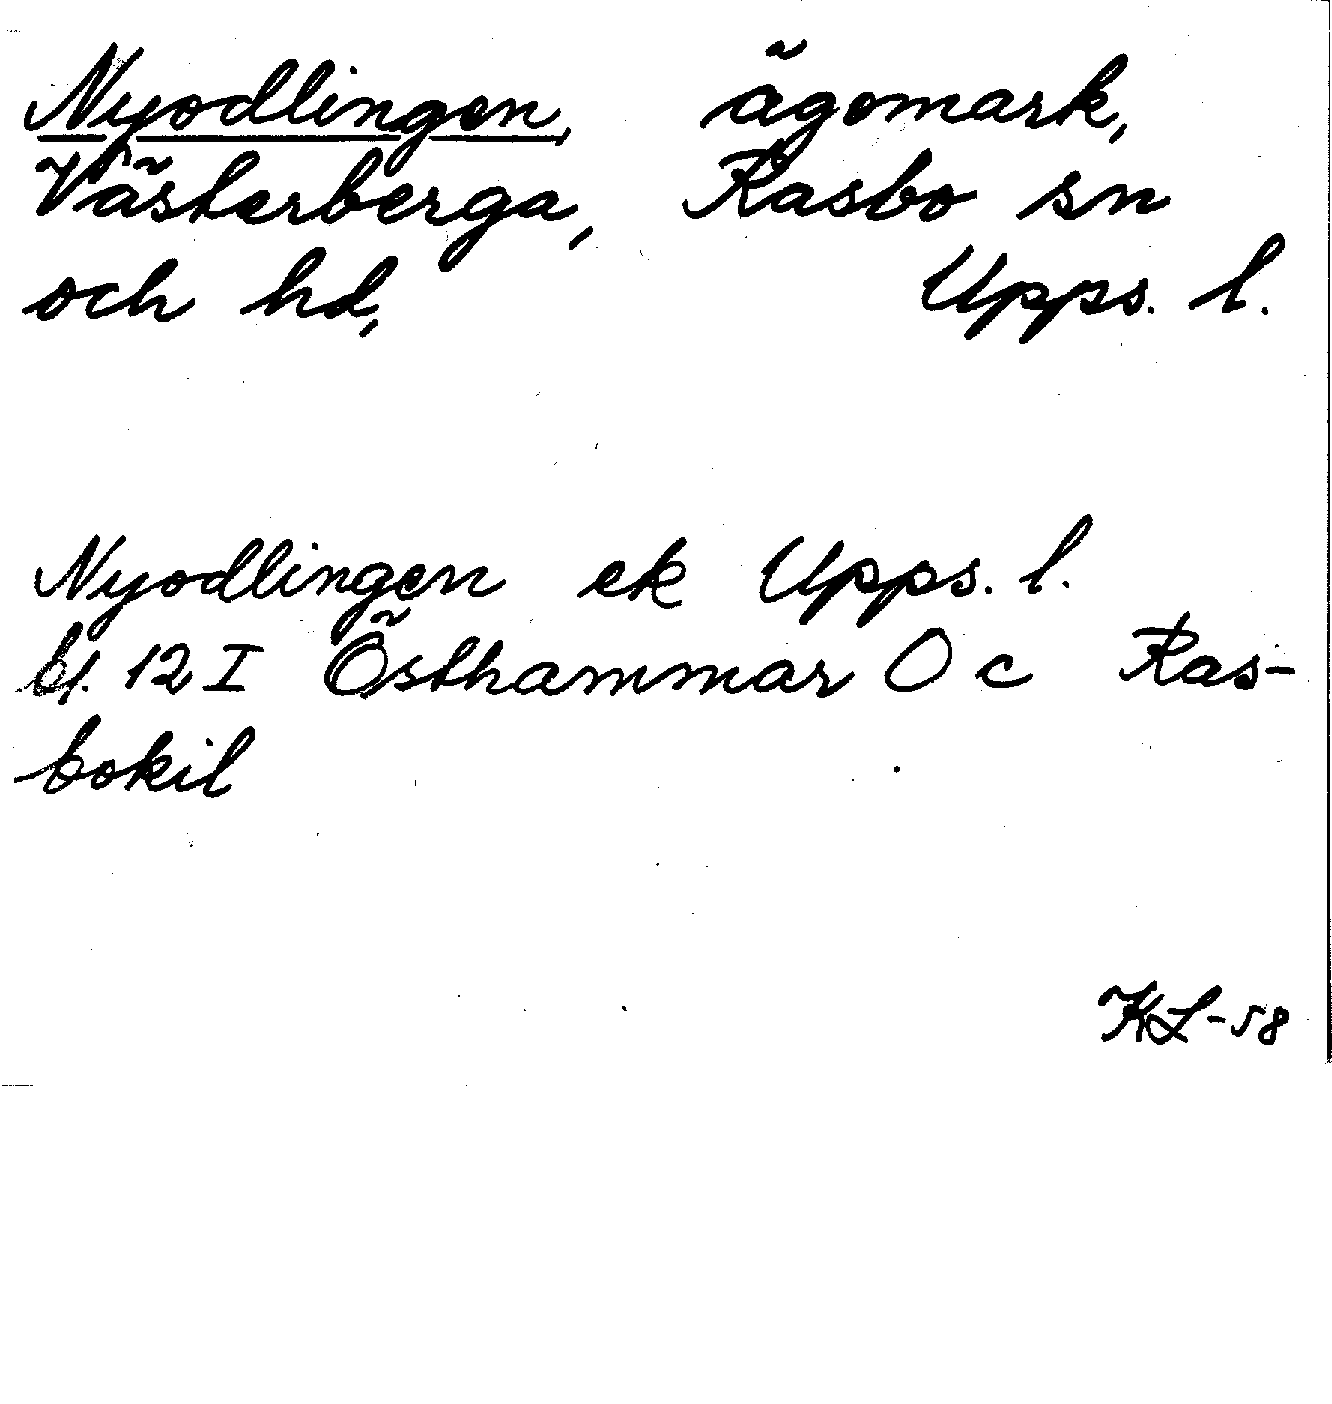 Nyodlingen, ägomark,
Västerberga, Rasbo sn
och hd, Upps. l.
Nyodlingen ek Upps. l.
bl. 12 I Östhammar O c Ras-
bokil
KL-58